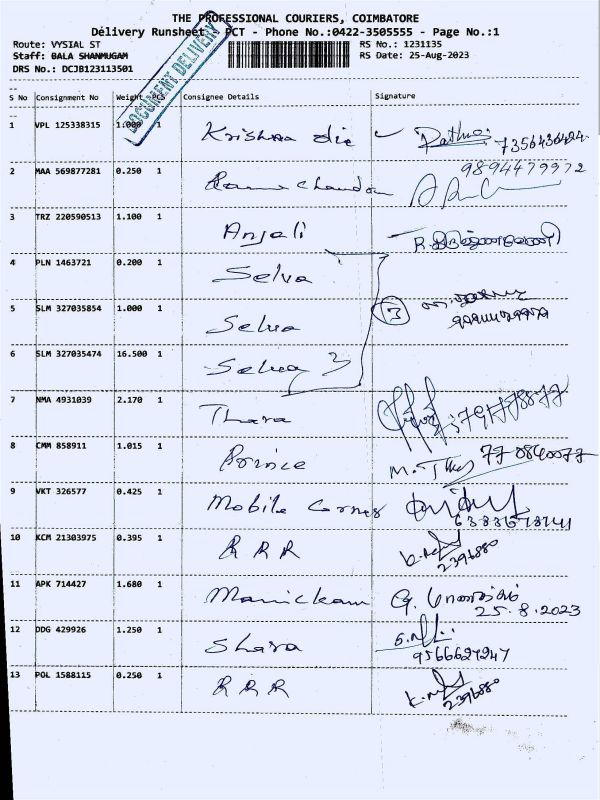 THE PROFESSIONAL COURIERS, COIMBATORE
Delivery Runsheet PCT - Phone No.:0422-3505555 - Page No.:1
Route: VYSIAL ST RS No.: 1231135
Staff: BALA SHANMUGAM RS Date: 25-Aug-2023
DRS No.: DCJB123113501
DOCUMENT DELIVERY
S No Consignment No Weight PCS Consignee Details Signature
1 VPL 125338315 1.000 1 Krishna 7356436424
2 MAA 569877281 0.250 1 9894479972
3 TRZ 220590513 1.100 1 Anjali
4 PLN 1463721 0.200 1 Selva
5 SLM 327035854 1.000 1 Selva 3
6 SLM 327035474 16.500 1 Selva 3
7 NMA 4931039 2.170 1 Thara
8 CMM 858911 1.015 1 Prince
9 VKT 326577 0.425 1 Mobile Corner
10 KCM 21303975 0.395 1 R R R 2396880
11 APK 714427 1.680 1 Manickam 25.8.2023
12 DDG 429926 1.250 1 9566627247
13 POL 1588115 0.250 1 R R R 2396880